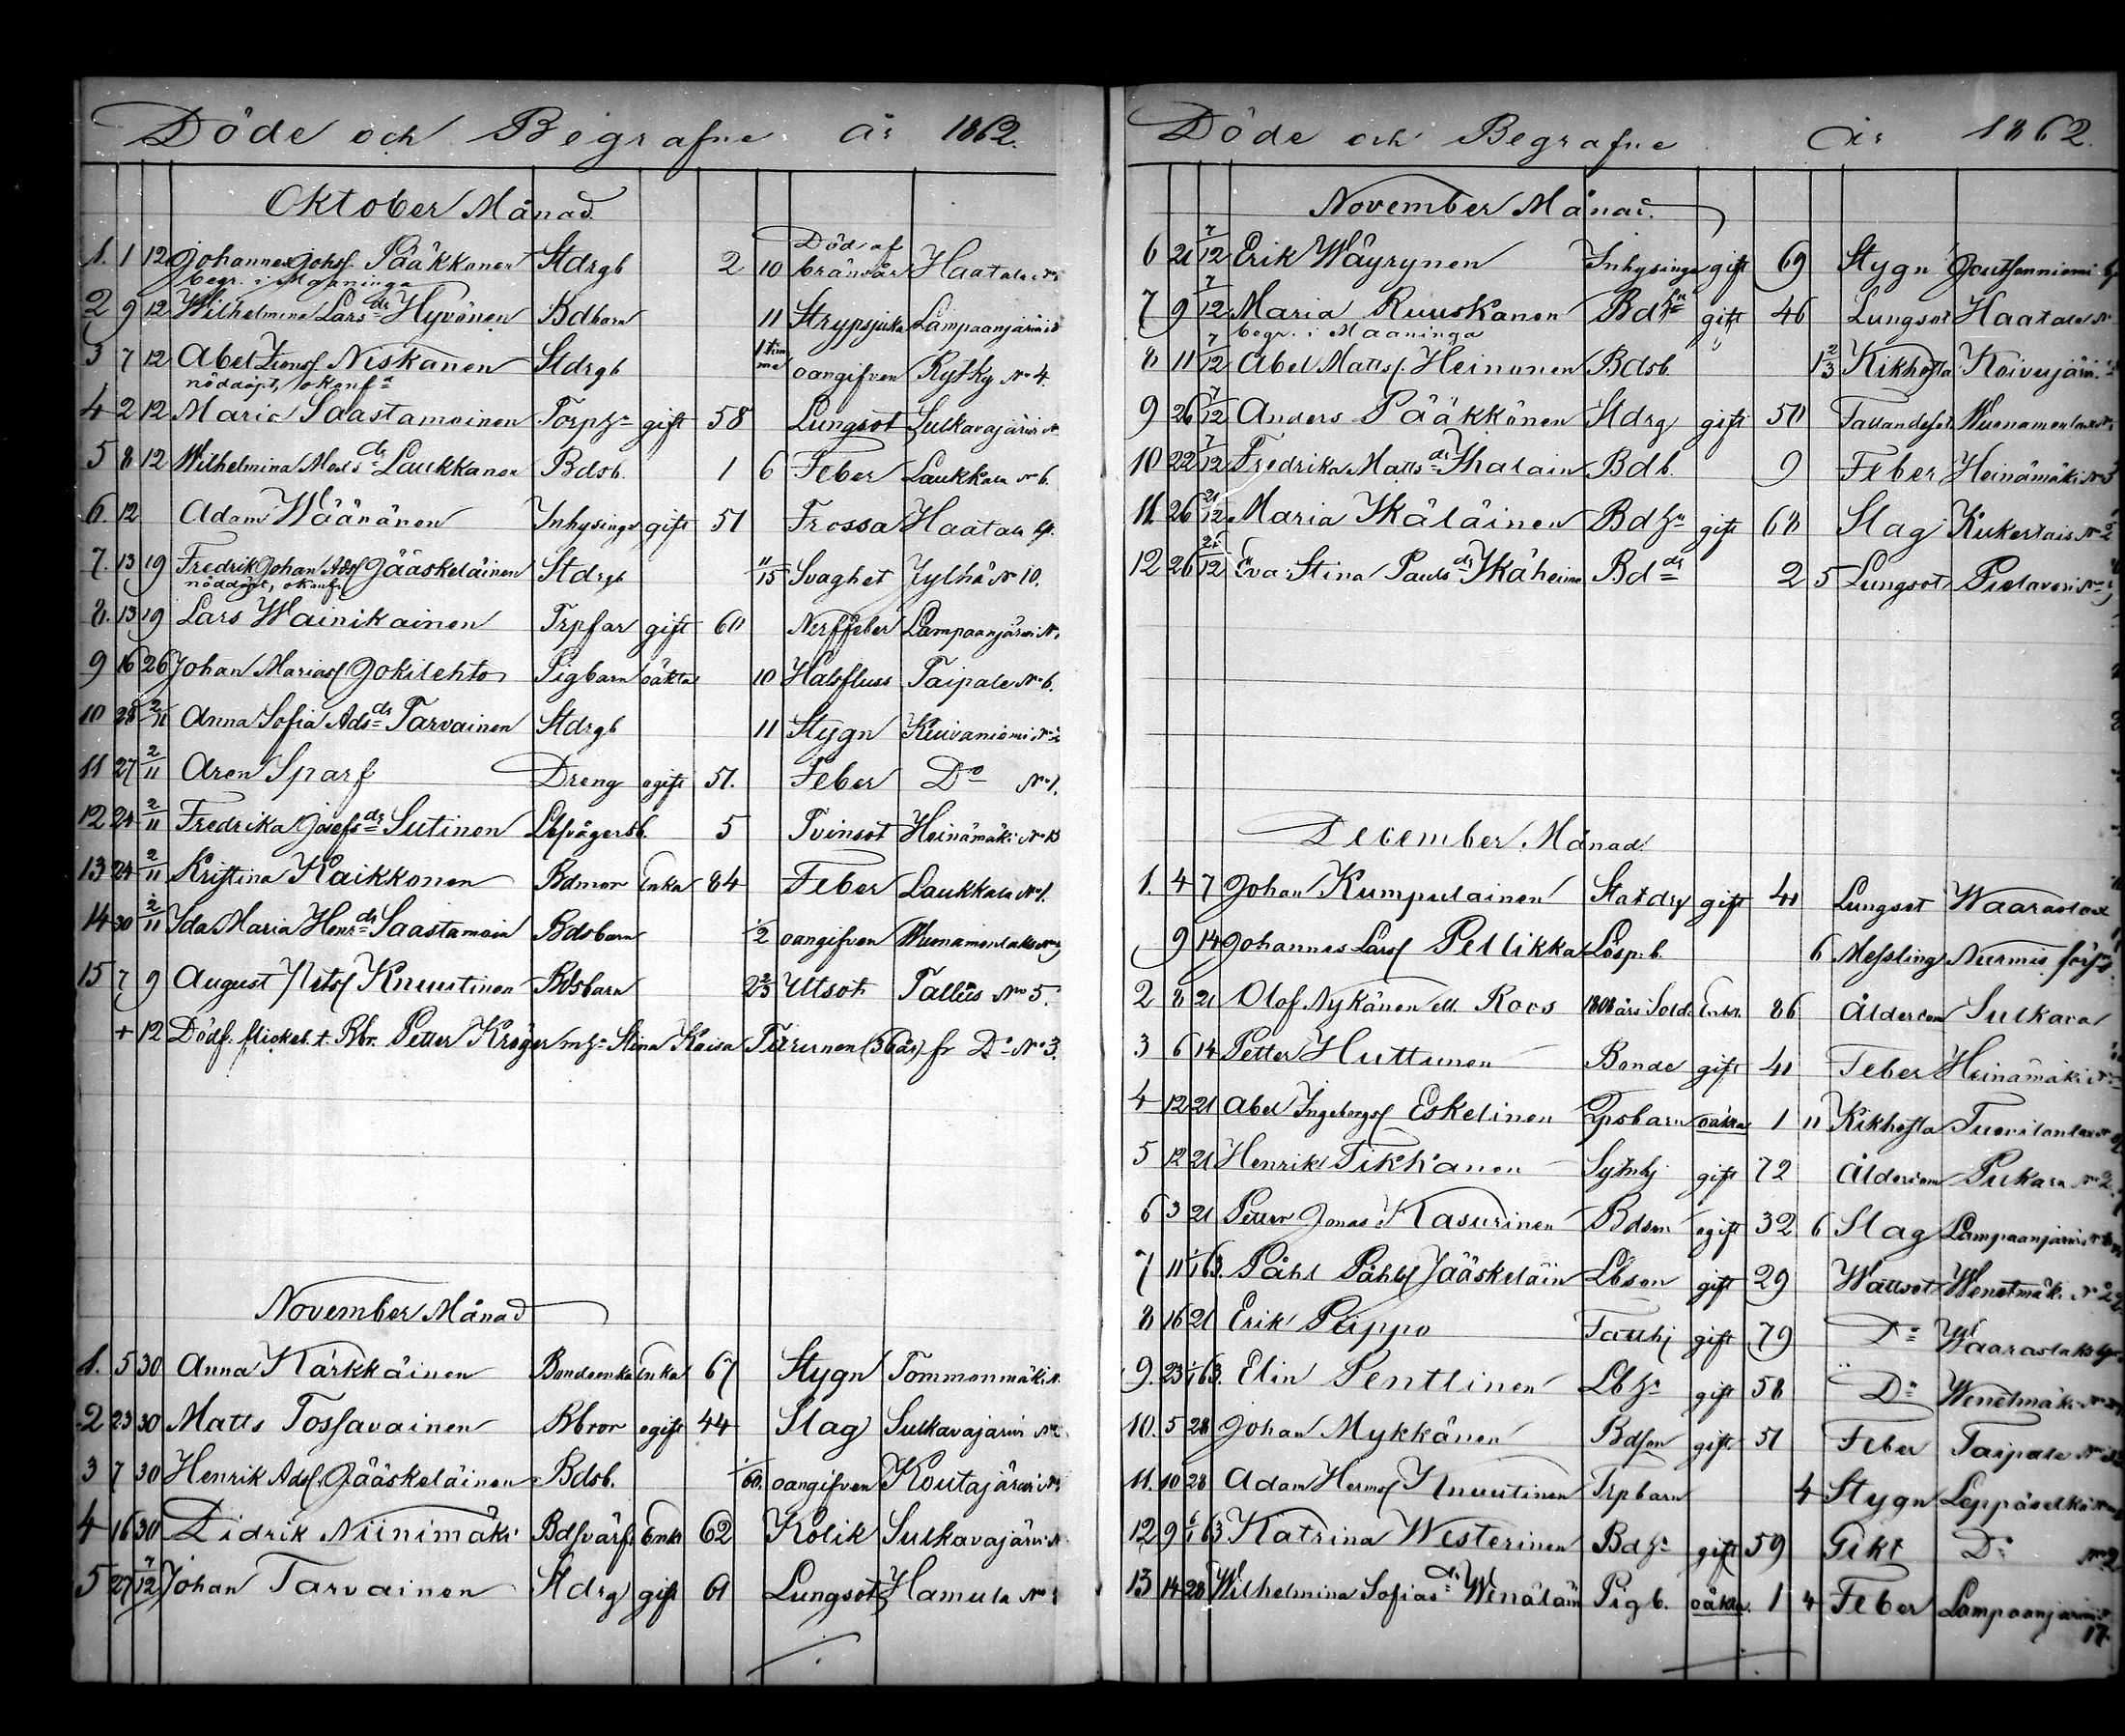 Döde och Begrafne År 1862.
Oktober Månad
1. 1 12 Johannes Johsf Pääkkonen Stdrgb 2 10 Död af brånsår Haatala
begr. i Maaninga
2 9 12 Wilhelmina Lars dr Hyvönen Bdbarn 11 Strypsjuka Lampaanjärvi
3 7 12 Abel Niskanen Stdrgb 1 timme oangifven Rytky No 4.
nöddöpt, okonf
4 2 12 Maria Saastamoinen gift 58 Lungsot Sulkavajärvi
5 8 12 Wilhelmina Mads dr Laukkanen Bdsb. 1 6 Feber Laukkala No 6.
6. 12 Adam Wäänänen Inhysings gift 51 Frossa Haatala
7. 13 19 Fredrik Johan Adsf Jääskeläinen Stdrgb 11/15 Svaghet Jylhä No 10.
nöddöpt, okonf
8. 13 19 Lars Wainikainen Trpfar gift 60 Nerffeber Lampaanjärvi
9 16 26 Johan Mariasf Jokilehto Pigbarn oäkta 10 Halsfluss Taipale No 6.
10 28 2/11 Anna Sofia Ads dr Tarvainen Stdrgb 11 Stygn Kuivaniemi No 2
11 27 2/11 Aron Sparf Dreng ogift 51. Feber Do No 1.
12 24 2/11 Fredrika Josefs dr Sutinen Lbsvågersb. 5 Tvinsot Heinämäki No 13
13 24 2/11 Kristina Kaikkonen Bdmor Enka 84 Feber Laukkala No 1.
14 30 2/11 Ida Maria Henr dr Saastamoin Bdsbarn 1/2 oangifven Wuonamonlaks
15 7 9 August Nilsf Knuutinen Bdsbarn 2 2/3 Utsot Tallus No 5.
+ 12 Dödf. flickeb. t. Rbr. Petter Kröger m h:u Stina Kaisa Turunen (36 år) fr Do No 3.
November Månad
1. 5 30 Anna Kärkkäinen Bondeenka Enka 67 Stygn Tommonmäki
2 23 30 Matts Tossavainen Rbror ogift 44 Slag Sulkavajärvi
3 7 30 Henrik Adsf Jääskeläinen Bdsb. 1/60. oangifven Koutajärvi
4 16 30 Didrik Niinimäki Bdsvärf Enkl 62 Kolik Sulkavajärvi
5 27 7/12 Johan Tarvainen Stdrg gift 61 Lungsot Hamula
Döde och Begrafne År 1862.
November Månad.
6 21 7/12 Erik Wäyrynen Inhysings gift 69 Stygn Joutsenniemi
7 9 7/12 Maria Ruuskanen gift 46 Lungsot Haatala
begr. i Maaninga
8 11 7/12 Abel Mattsf. Heinonen Bdsb. 1 2/3 Kikhosta Koivujärvi
9 26 7/12 Anders Pääkkönen Stdrg gift 50 Wuonamonlax
10 22 7/12 Fredrika Matts dr Ihalain Bdb. 9 Feber Heinämäki
11. 26 21/12 Maria Ikäläinen Bdh:u gift 68 Slag No 2
12 26 21/12 Eva Stina Pauls dr Ikäheim Bd dr 2 5 Lungsot Pielavesi
December Månad.
1. 4 7 Johan Kumpulainen Statdrg gift 41 Lungsot Waaraslax
9 14 Johannes Larsf Pellikka Löspb. 6 Messling Nurmis förs.
2 8 21 Olof Nykänen ell. Roos 1808 års Sold. Enkl. 86 Ålderdom Sulkava
3 6 14 Petter Huttunen Bonde gift 41 Feber Heinämäki
4 12 21 Abel Ingeborgsf Eskelinen oäkta 1 11 Kikhosta
5 12 21 Henrik Tikkanen gift 72 Ålderdom Pukara No 2
6 3 21 Petter Jonas Kasurinen Bdson ogift 32 6 Slag Lampaanjärvi
7 11 1/1 63. Påhl Påhlsf Jääskeläin Lbson gift 29 Wattsot Wenetmäki
8 16 21 Erik Piippo gift 79 Do Waaraslaks
9. 23 1/1 63. Elin Pentlinen Lbh:u gift 58 Do Wenetmäki
10. 5 28 Johan Mykkänen Bdson gift 51 Feber Taipale
11. 10 28 Adam Hermsf Knuutinen Trpbarn 4 Stygn Leppäselkä
12 9 6/1 63 Katrina Westerinen Bdh:u gift 59 Gikt Do No 2
13 14 28 Wilhelmina Sofias dr Wenäläin Pigb. oäkta. 1 4 Feber Lampaanjärvi
17.